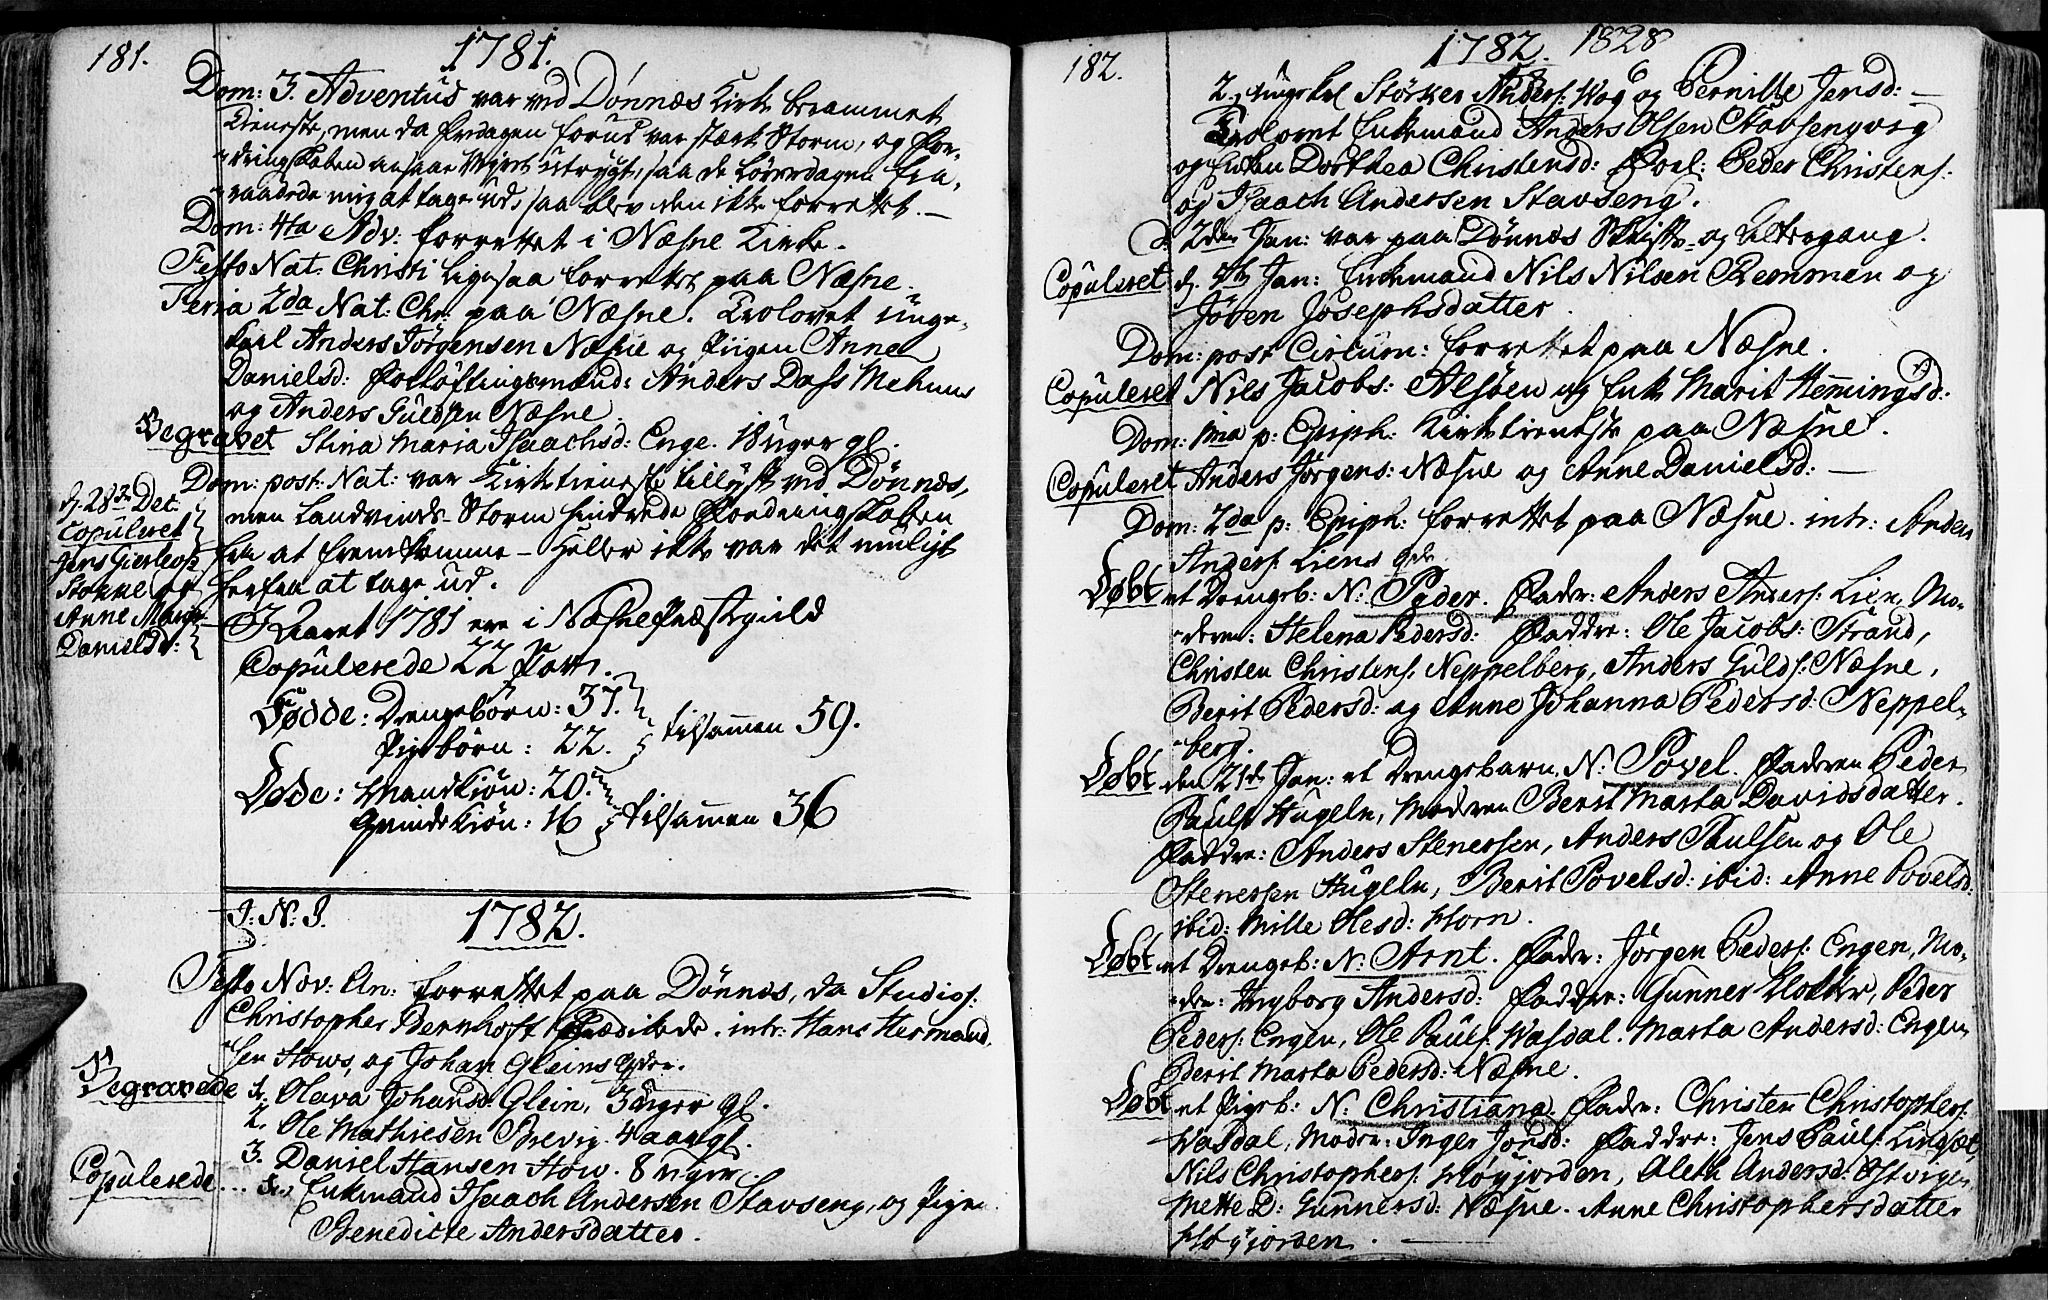 181.
1781.
Dom: 3. Adventus var ved Dönnæs Kirke berammet
tieneste, men da Fredagen forud var stærk Storm, og For-
-dringskaben ansaae Vejret utrygt, saa de Löverdagen fra-
-raadede mig at tage ud, saa blev den ikke forrettet. -
Dom: 4ta Adv. forrettet i Næsne Kirke.
Festo Nat. Christi ligesaa forrettet paa Næsne.
Feria 2da Nat: Chr. paa Næsne. Trolovet unge-
karl Anders Jörgensen Næsne og Pigen Anne
Danielsd: Forlöftningsmænd: Anders Dass
og Anders Guldsen Næsne.
Begravet Stina Maria Isaachsd: Enge. 18 uger gl.
Dom: post: Nat: var Kirketieneste tillyst ved Dönnæs,
men Landvinds-Storm hindrede Fordringskaben
fra at fremkomme - Heller ikke var det muligt
herfra at tage ud.
d. 28de Dec.
Copuleret
Jens
og
Anne Marie
Danielsd:
I Aaret 1781 ere i Næsne Præstegield
Copulerede 22 Par.
Födde: Drengebörn: 37.
Pigebörn: 22. tilsammen 59.
Döde: Mandkiön: 20.
Qvindekiön: 16 tilsammen 36
J. N. J. 1782.
Festo Nov: An: forrettet paa Dönnæs, da Studios:
Christopher Bernhoft prædikede. intr: Hans Hermand-
-sen Stows, og Johan Gleins Qvder.
Begravede 1. Olava Johansd: Glein, 3 uger gl.
2. Ole Mathiesen Brevig. 4 aar gl.
3. Daniel Hansen Stow. 8 uger
Copulerede 1. Enkemand Isaach Andersen Stavseng, og Pigen
Benedicte Andersdatter.
182.
1782. 1828
2. Ungekarl Störker Anders: Wog og Pernille Jensd: -
Trolovet Enkemand Anders Olsen Stavsengvig
og Enken Dorthea Christensd: Forl: Peder Christens:
og Isaach Andersen Stavseng.
d. 2den Jan: var paa Dönnæs Skifte- og Altergang.
Copuleret d. 4de Jan: Enkemand Nils Nilsen Remmen og
Jören Josephsdatter.
Dom: post Circum: forrettet paa Næsne.
Copuleret Nils Jacobs: Alsöen og Enke Marit Hemmingsd:
Dom: 1ma p: Epiph: Kirketieneste paa Næsne.
Copuleret Anders Jörgens: Næsne og Anne Danielsd: -
Dom: 2da p: Epiph: forrettet paa Næsne. intr: Anders
Anders: Liens Qde
Döbt et Drengeb: N: Peder. Fader: Anders Anders: Lien, Mo-
-deren: Helena Pedersd: Faddre: Ole Jacobs: Strand,
Christen Christens: Neppelberg, Anders Gulds: Næsne,
Berit Pedersd: og Anne Johanna Pedersd: Neppel-
-berg.
Döbt den 21de Jan: et Drengebarn, N: Povel. Faderen Peder
Pauls: Hugeln, Moderen Berit Marta Davidsdatter.
Faddre: Anders Stenersen, Anders Paulsen og Ole
Stenersen Hugeln, Berit Povelsd: ibid: Anne Povelsd:
ibid: Mille Olesd: Horn.
Döbt et Drengeb: N: Arnt. Fader: Jörgen Peders: Engen, Mo-
-der: Ingborg Andersd: Faddre: Gunner Peder
Peders: Engen, Ole Pauls: Wasdal. Marta Andersd: Engen,
Berit Marta Pedersd: Næsne.
Döbt et Pigeb: N: Christiana. Fader: Christen Christophers:
Wasdal, Moder: Inger Jonsd: Faddre: Jens Pauls: Lingsæt,
Nils Christophers: Höyjorden, Aleth Andersd: Östvigen,
Mette D: Gunnersd: Næsne. Anne Christophersdatter
Höyjorden.